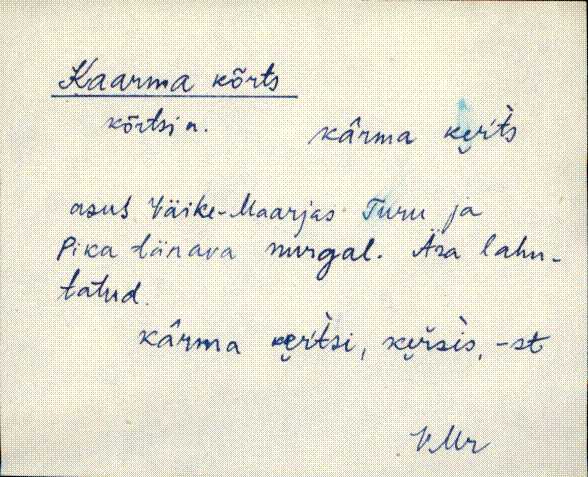 Kaarma kõrts
kõrtsi n.
kârma ke̮rt̀s
asus Väike-Maarjas Turu ja
Pika tänava nurgal. Ära lahu-
tatud.
kârma ke̮rt̀si, ke̮r̆sìs, -st
VMr